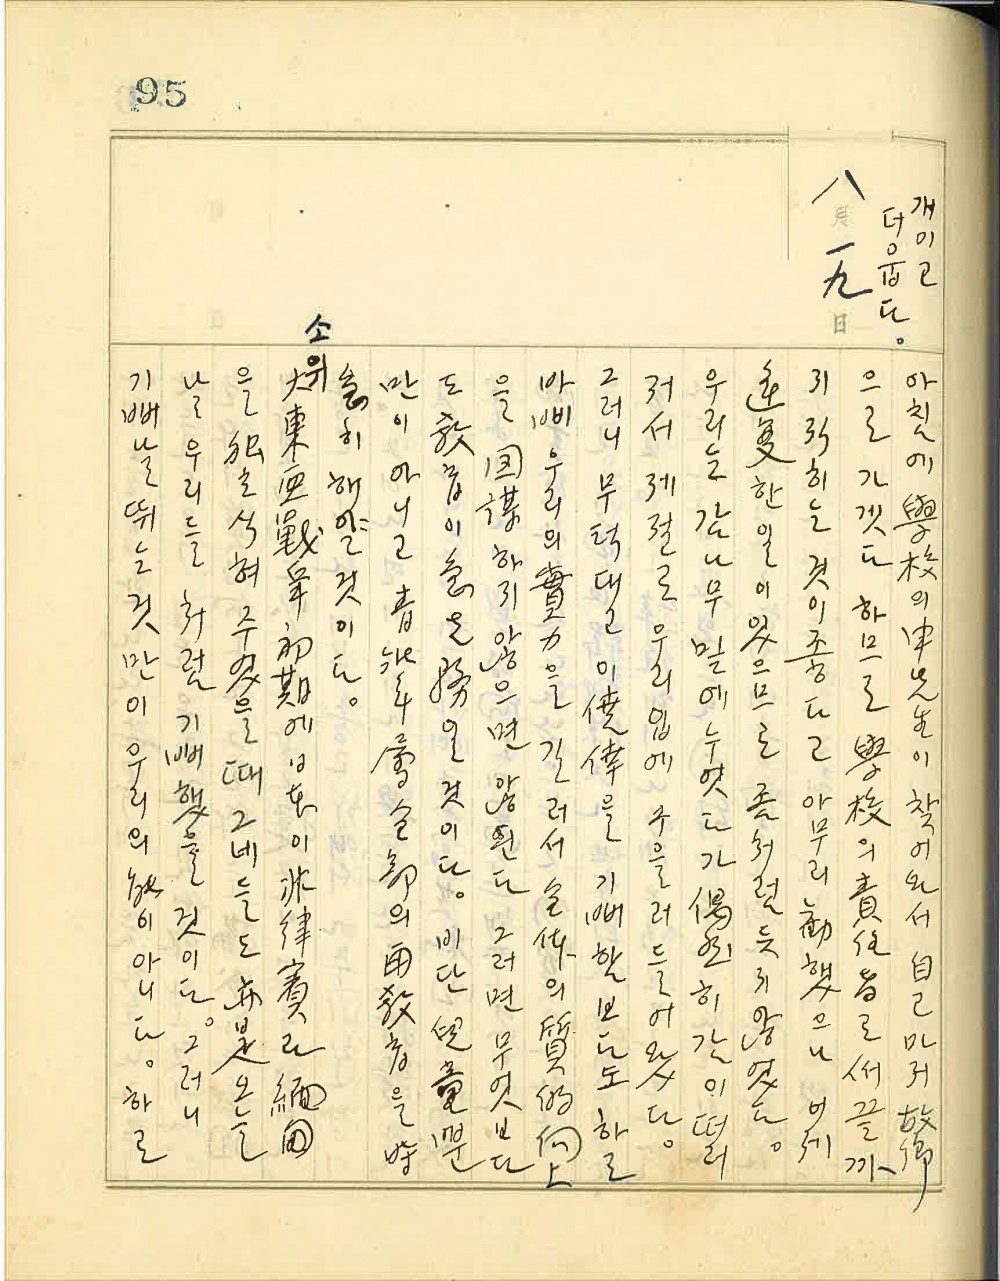 95
개이고
더웁다。
八月一九日
아침에 學校의 申先生이 찾어와서 自己마저 故鄕
으로 가겟다 하므로 學校의 責任者로써 끝까
지 직히는 것이 좋다고 아무리 勸했으나 어제
 한 일이 있으므로 좀처럼 듯지 않엇다。
우리는 감나무 밑에 누엇다가 偶然히 감이 떨러
저서 제절로 우리 입에 주을러 들어왔다。
그러니 무턱대고 이 僥倖을 기뻐할 보다도 하로
바삐 우리의 實力을 길러서 全体의 質的 向上
을 圖謀하지 않으면 않된다 그러면 무엇보다
도 敎育이 急先務일 것이다。비단 兒童뿐
만이 아니고 靑壯年層 全部의 再敎育을 時
急히 해야 할 것이다。
소위 大東亞戰爭 初期에 日本이 非律賓과 緬甸
을 獨立식혀 주엇을 때 그네들도 亦是 오늘
날 우리들처럼 기뻐했을 것이다。그러니
기뻐 날뛰는 것만이 우리의 能이 아니다。하로